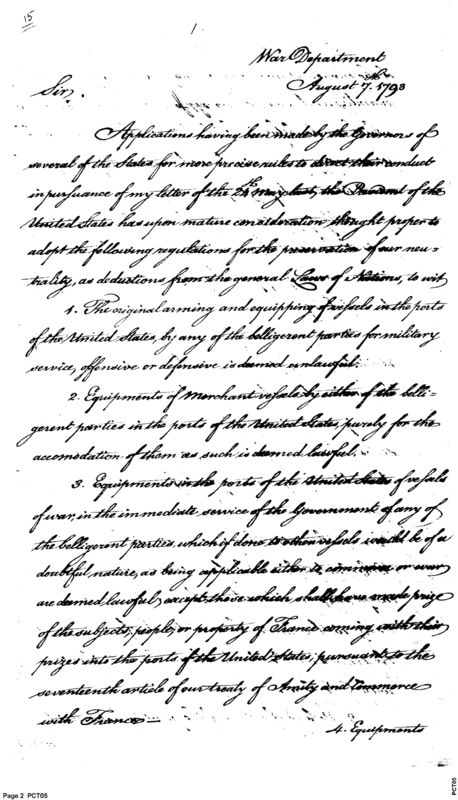 15
1
War Department
August 7th. 1793
Sir,
Applications having been made by the Governors of
several of the States for more precise rules to direct their conduct
in pursuance of my letter of the 24th may last, the President of the
United States has upon mature consideration thought proper to
adopt the following regulations for the preservation of our neu=
trality, as deductions from the general Laws of Nations, to wit
1. The original arming and equipping of vessels in the ports
of the United States, by any of the belligerent parties for military
service, offensive or defensive is deemed unlawful.
2. Equipments of Merchant vessels by either of the belli=
gerent parties in the ports of the United States, purely for the
accomodation of them as such is deemed lawful.
3. Equipments in the ports of the United States of vessels
of war, in the immediate service of the Government of any of
the belligerent parties, which if done to other vessels would be of a
doubtful nature, as being applicable either to commerce or war
are deemed lawful, except those which shall have made prize
of the subjects, people, or property of France coming with their
prizes into the ports of the United States, pursuant to the
seventeenth article of our treaty of Amity and Commerce
with France—
4. Equipments
Page 2 PCT05
PCT05